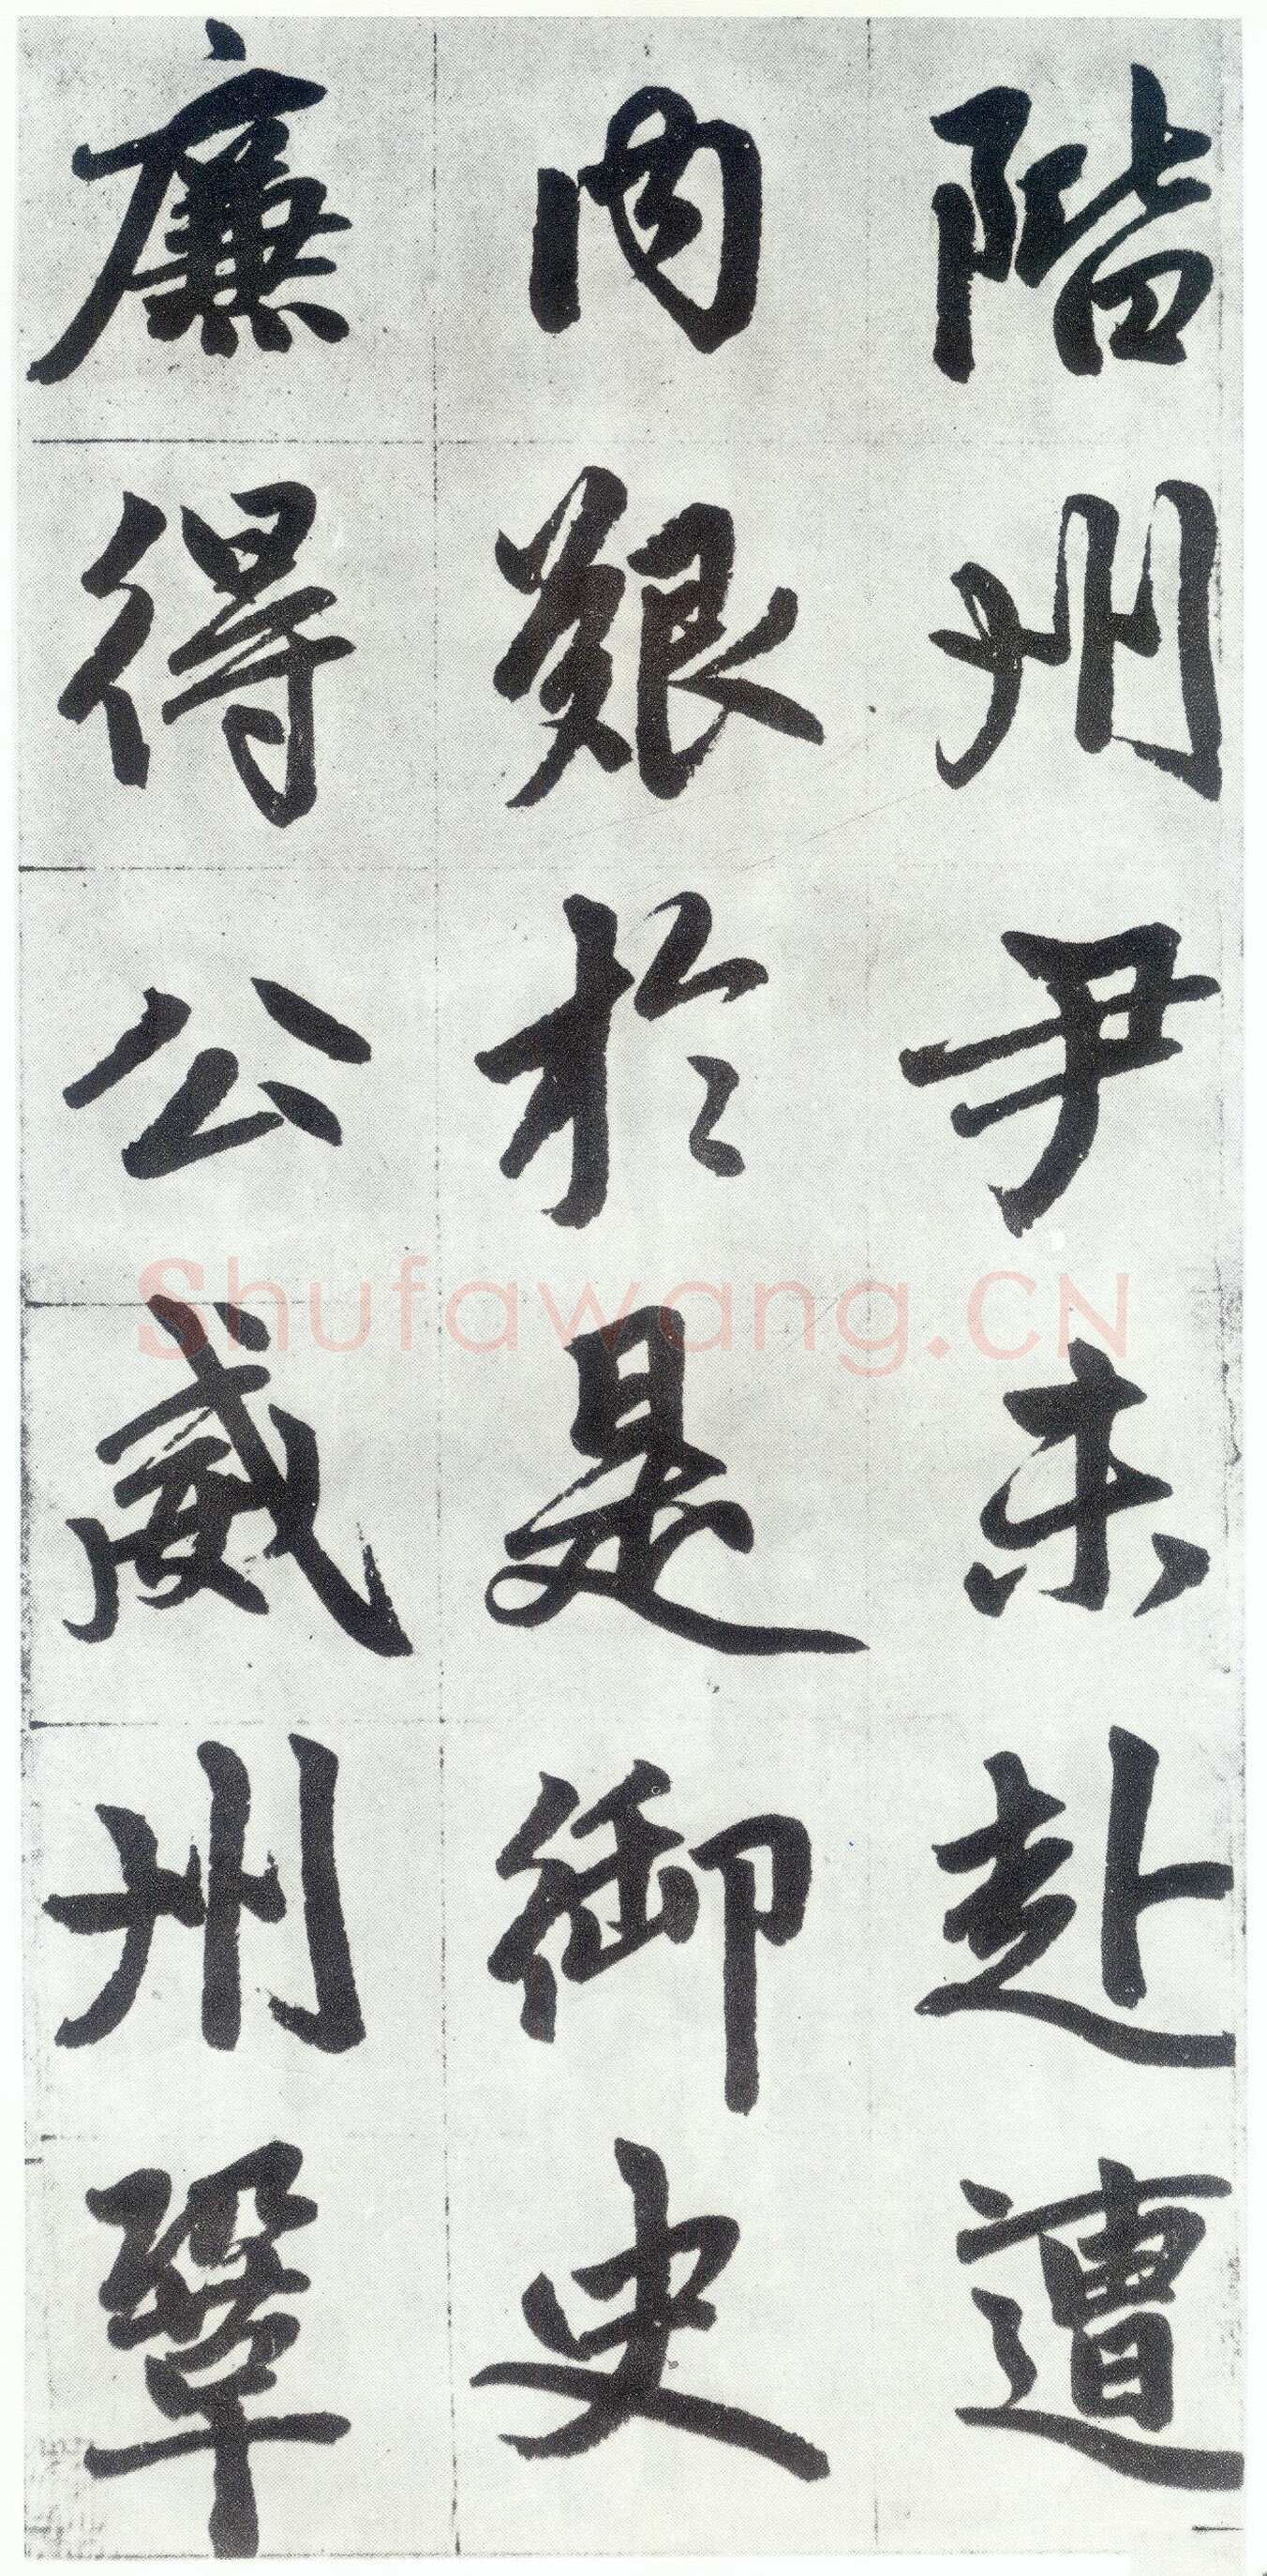 階州尹未赴遭
内艱於是御史
廉得公威州鞏
Shufawang.CN